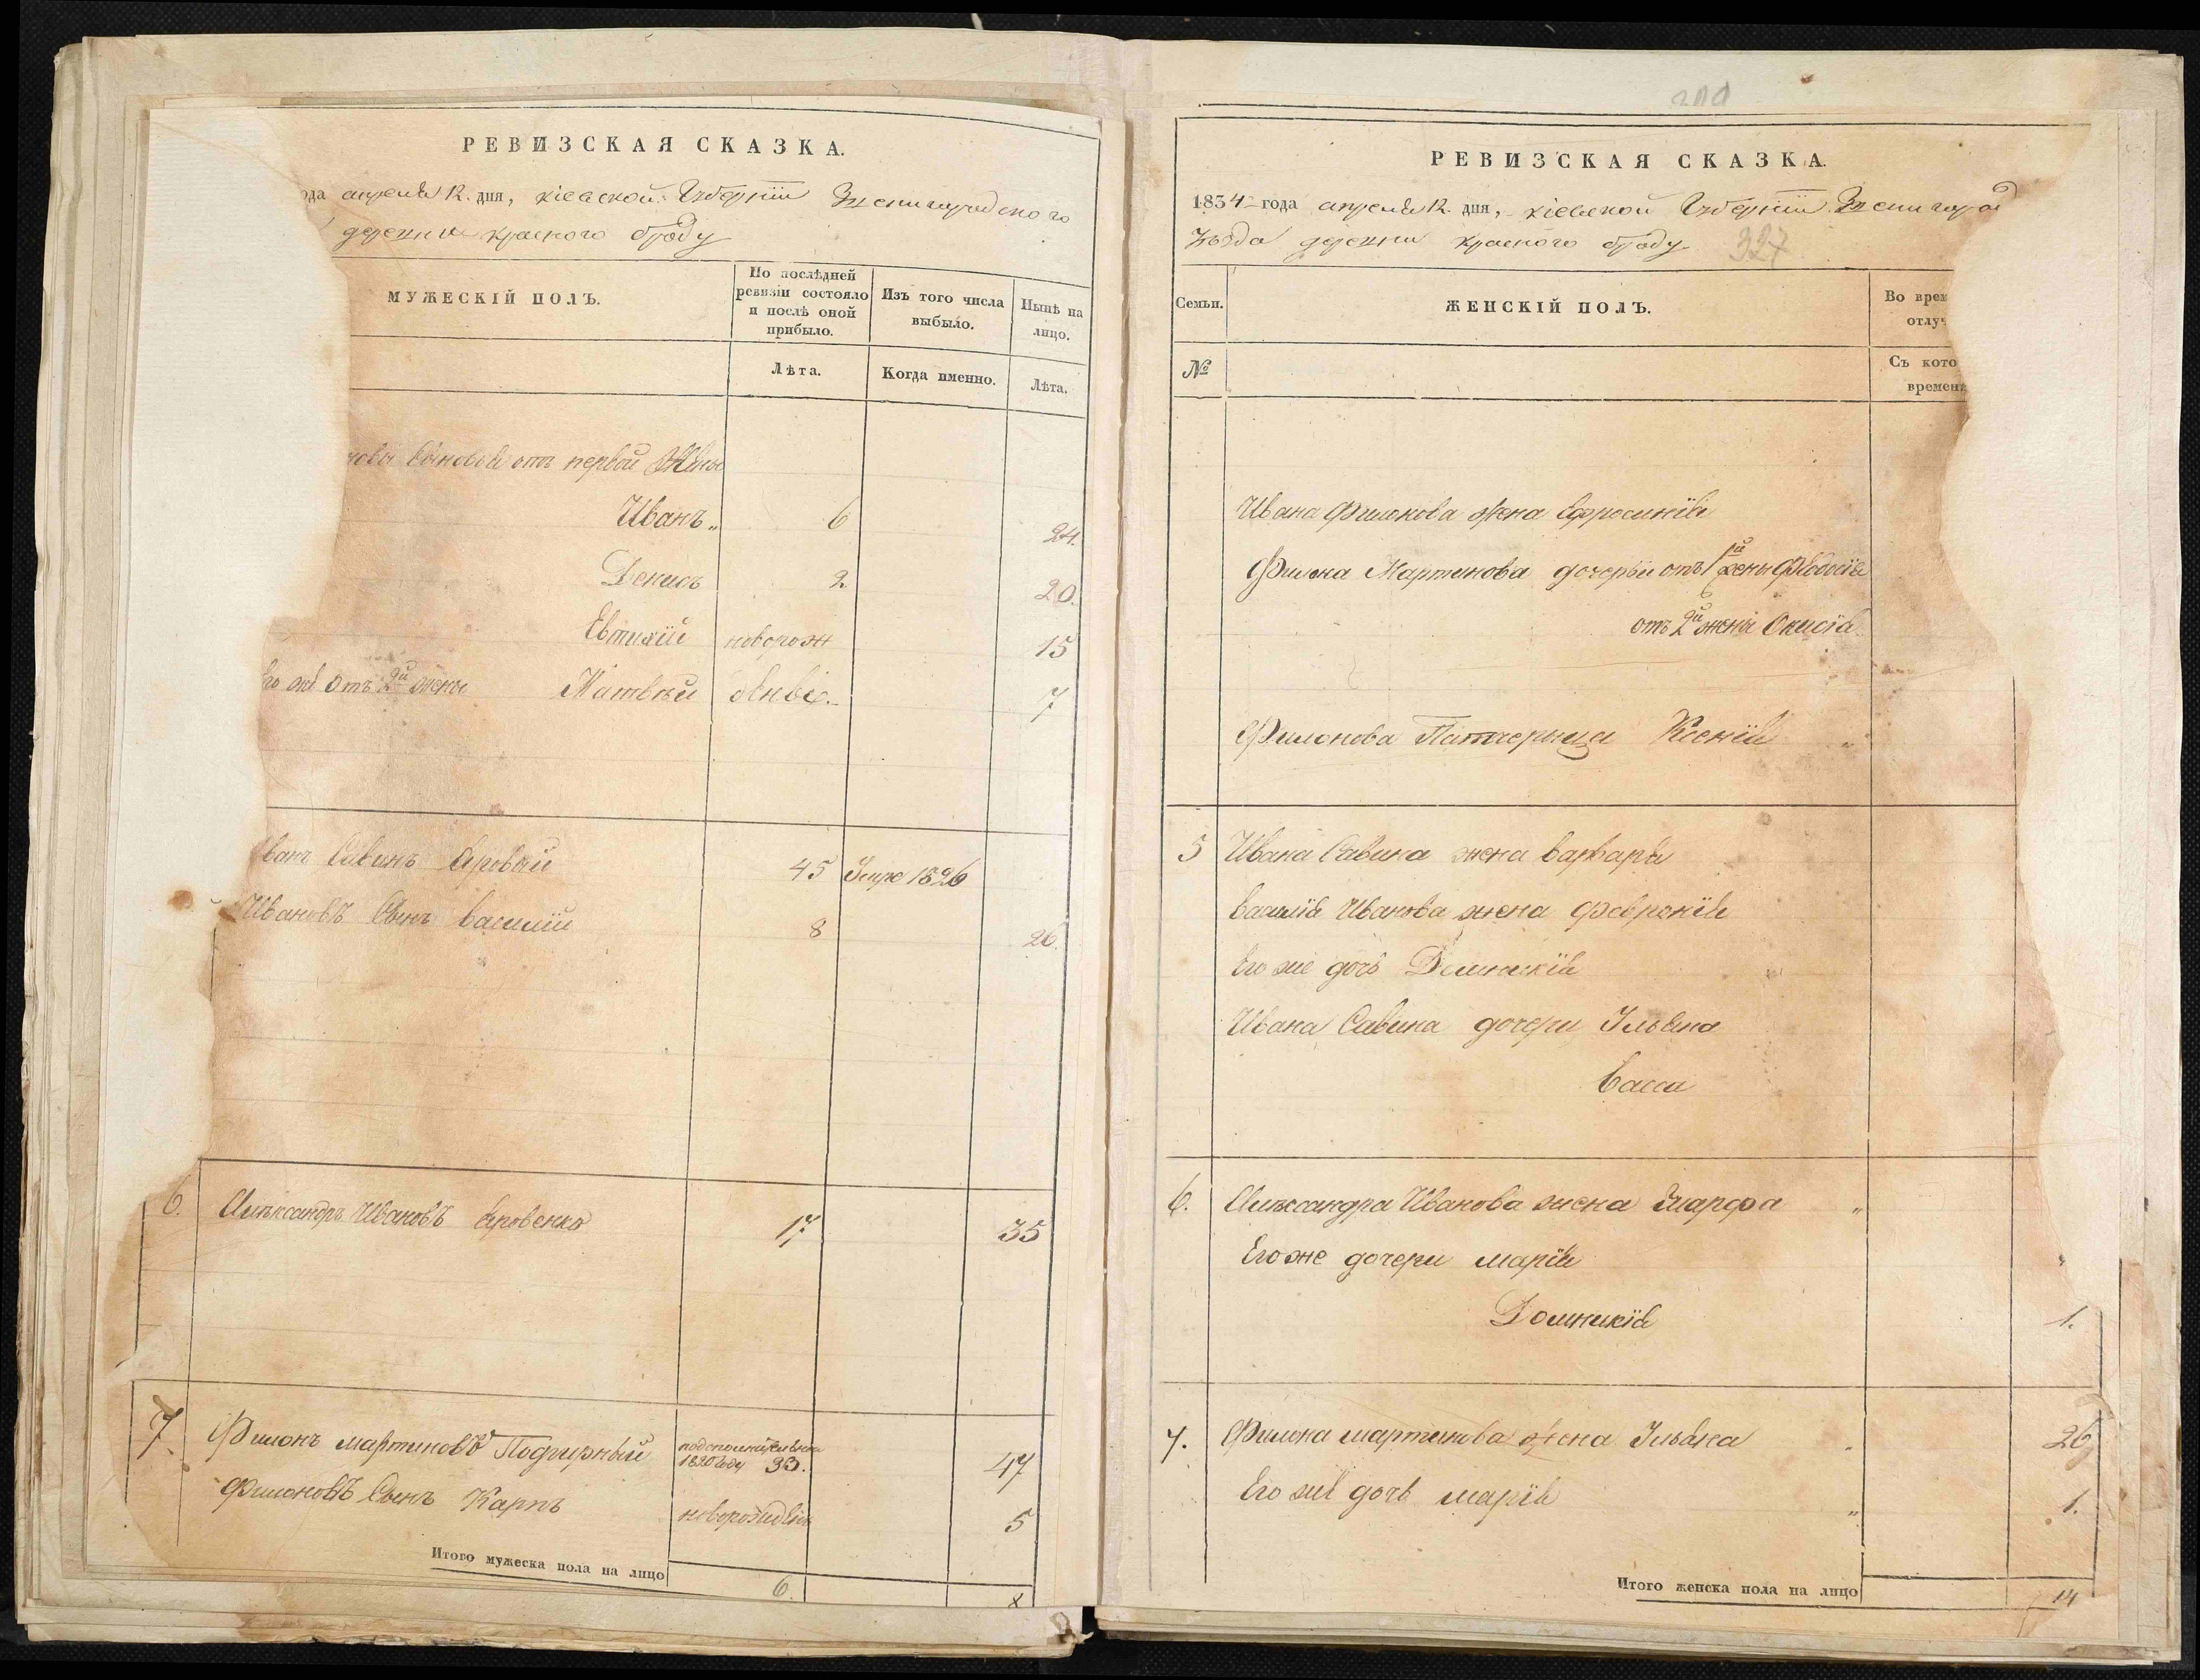 РЕВИЗСКАЯ СКАЗКА.
ода апреля 12. дня, кіевской Губерніи Звенигородского
деревни красного броду
МУЖЕСКІЙ ПОЛЪ.
По послѣдней ревизіи состояло и послѣ оной прибыло.
Изъ того числа выбыло.
Нынѣ на лицо.
Лѣта.
Когда именно.
Лѣта.
новы Сыновья отъ первой Жены
Иванъ 6 24.
Денисъ 2 20.
Евтихій новорож 15
его же отъ 2й жены Матвѣй 7
ванъ Савинъ Яровый 45 Умре 1826
Ивановъ Сынъ василий 8 26.
6. Александръ Ивановъ Яровенко 17 35
7. Филонъ мартиновъ Подгирный 1820 году 33. 47
Филоновъ Сынъ Карпъ новорожден 5
Итого мужеска пола на лицо 6. 8
327
РЕВИЗСКАЯ СКАЗКА.
1834 года апреля 12. дня, кіевской Губерніи Звенигород
уѣзда деревни красного броду
Семьи.
ЖЕНСКІЙ ПОЛЪ.
Во врем
отлуч
№
Съ кото
времен
Ивана Филонова жена Ефросинія
Филона Мартинова дочерьи отъ 1й жены Феодосія
отъ 2й жены
Филонова Патчерица Ксенія
5 Ивана Савина жена варвара
василія Иванова жена Февронія
Его же дочь Домникія
Ивана Савина дочери Ульяна
васса
6. Александра Иванова жена марфа
Его же дочери марія
Домникія 1.
7. Филона мартинова жена Ульяна 26
Его же дочь марія 1.
Итого женска пола на лицо 14